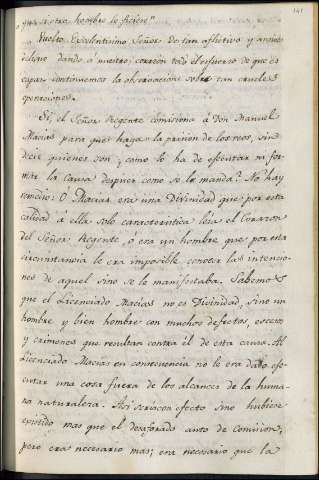 141
otro hombre lo hiciere".
Vuelto Excelentisimo Señor de tan aflictivo y
dando á nuestro corazon todo el esfuerzo de que es
capaz continuemos la observacion sobre tan crueles
operaciones.
Si, el Señor Regente comisiona á Don Manuel
Macias para que haga la prision de los reos, sin
decir quienes son ¿como lo ha de ejecutar ni for-
mar la causa despues como se le manda? No hay
remedio: Ó Macias era una Divinidad que por esta
calidad á ella solo caracteristica leia el Corazon
del Señor Regente, ó era un hombre que por esta
circunstancia le era imposible conocer las intencio-
nes de aquel sino se le manifestaba. Sabemos
que el Licenciado Macias no es Divinidad, sino un
hombre y bien hombre con muchos defectos, excesos
y crimenes que resultan contra él de esta causa. Al
Licenciado Macias en consecuencia no le era dado eje-
cutar una cosa fuera de los alcances de la huma-
na naturaleza. Asi seria con efecto sino hubiese
existido mas que el desaforado auto de Comision;
pero era necesario mas; era necesario que la